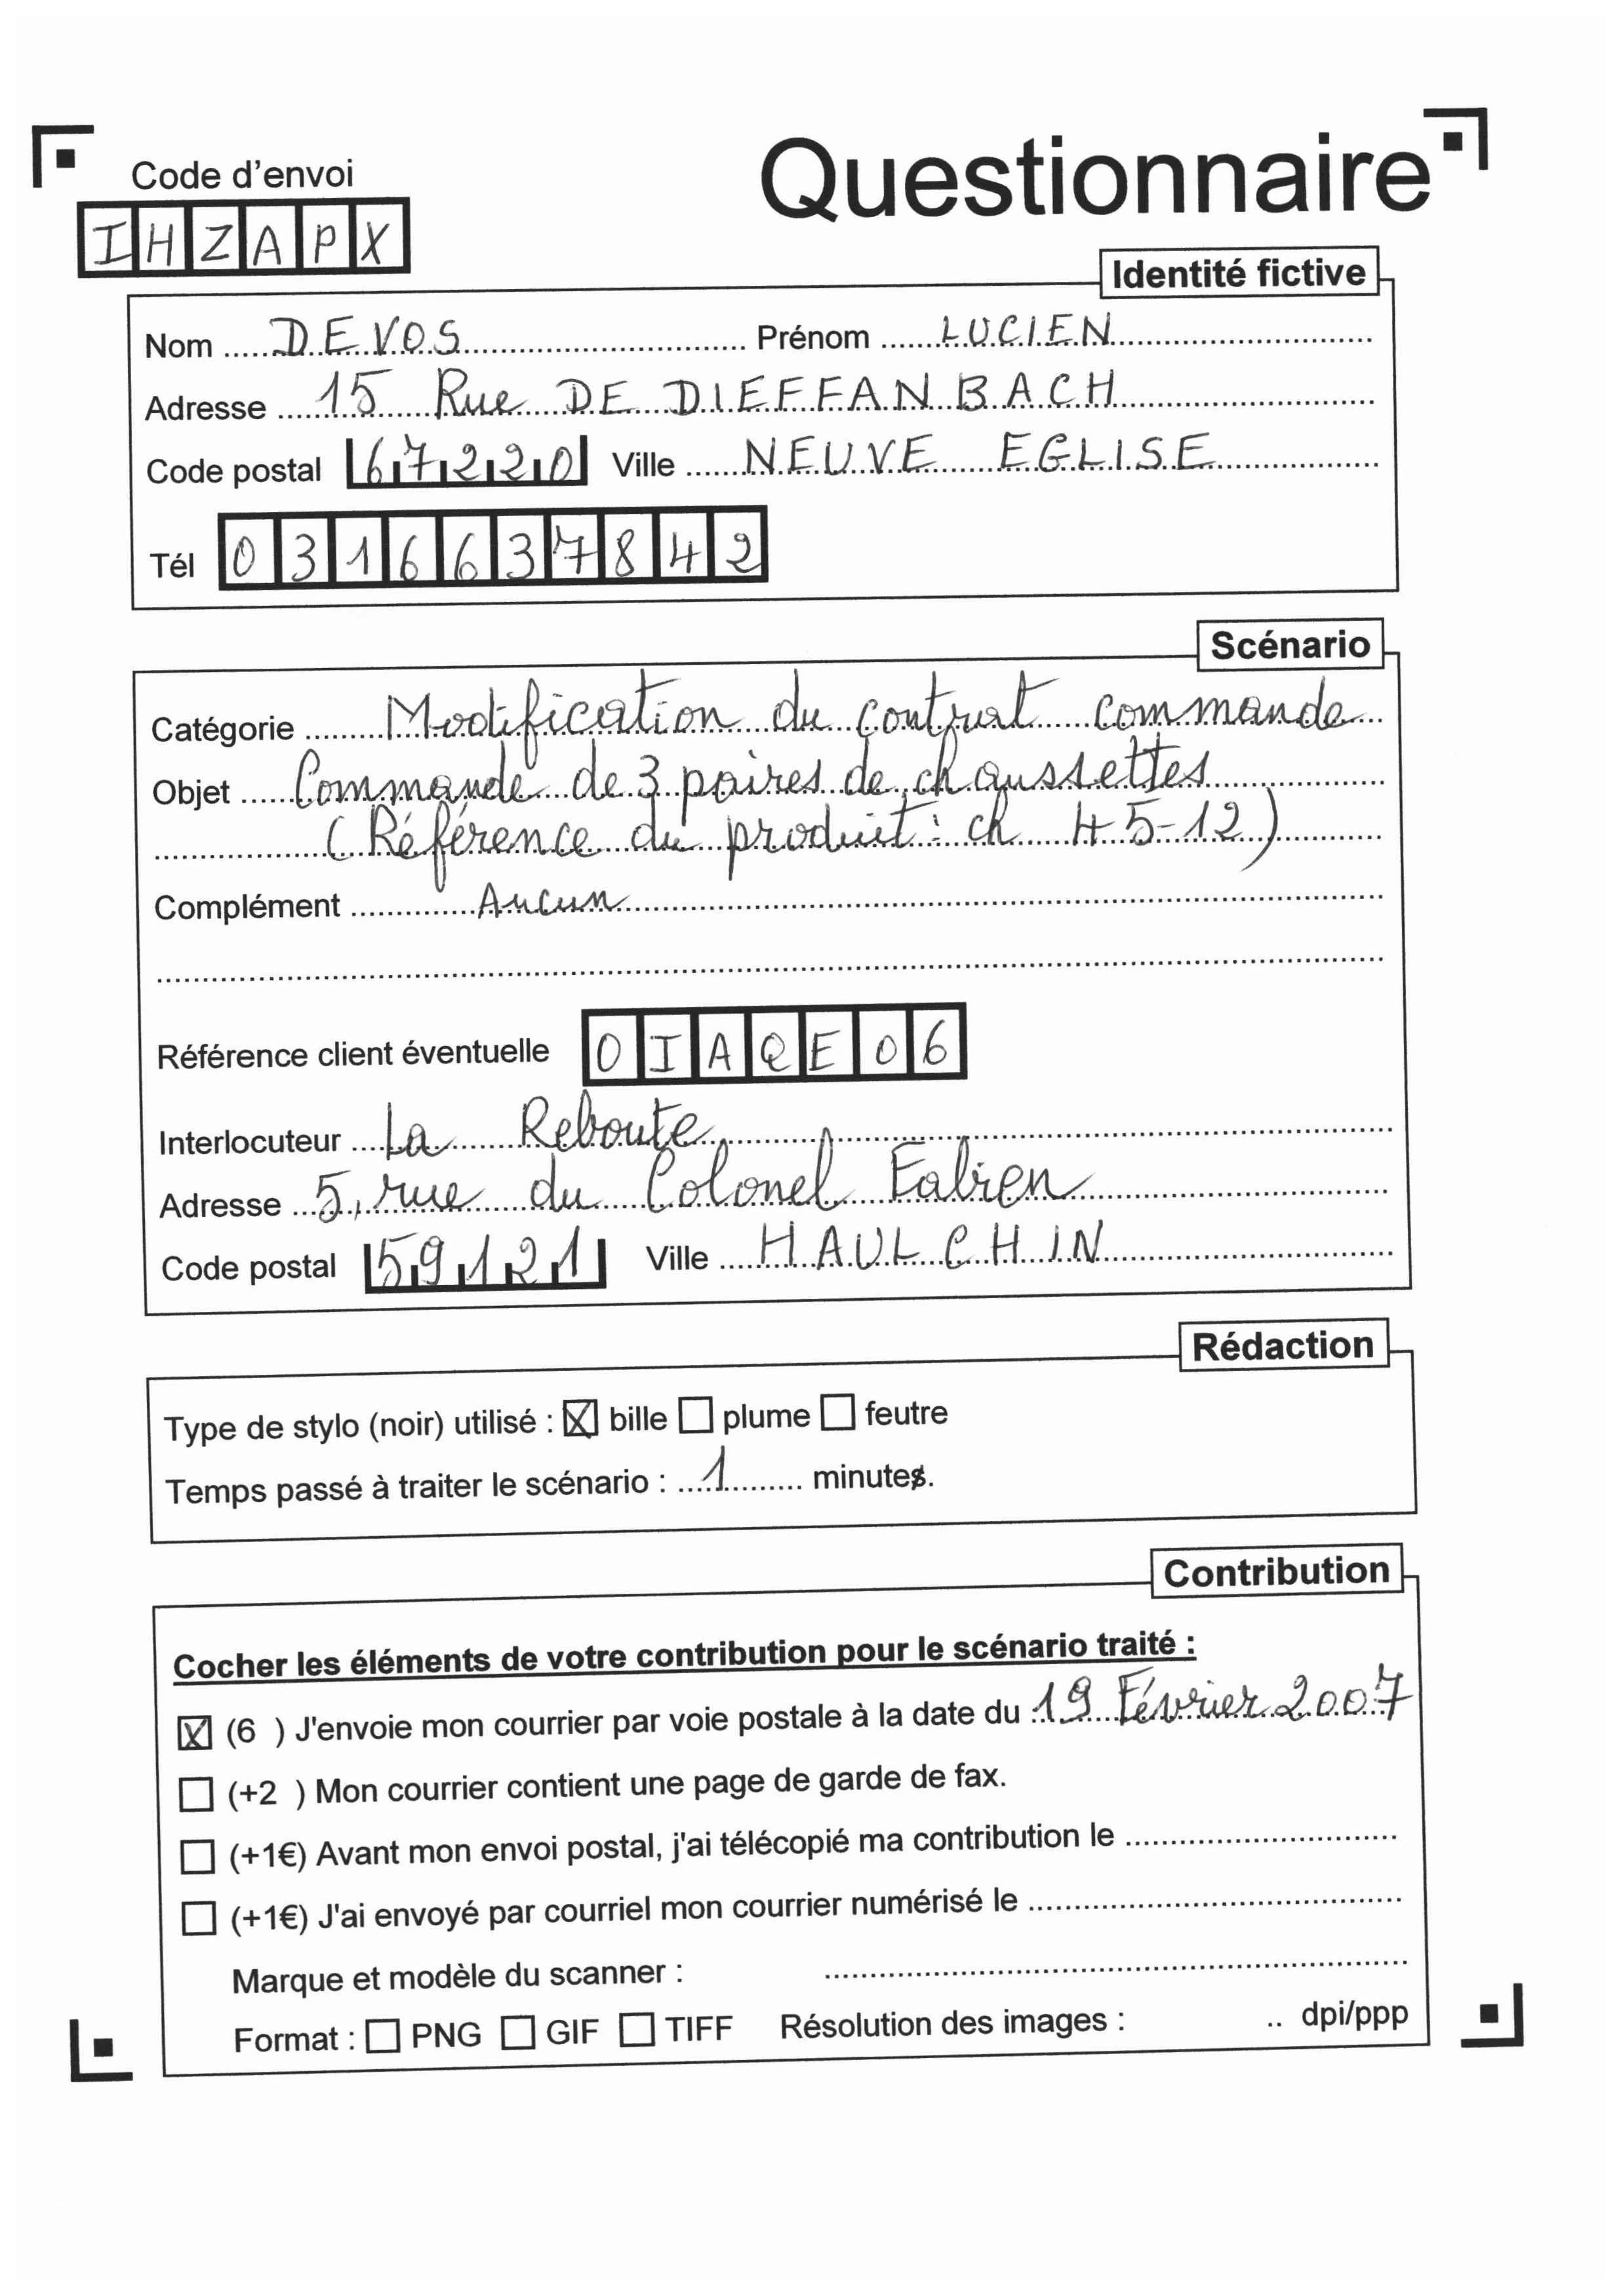 Questionnaire
Code d'envoi
IHZAPX
Identité fictive
Nom DEVOS Prénom LUCIEN
Adresse 15 Rue DE DIEFFANBACH
Code postal 67220 Ville NEUVE EGLISE
Tél 0316637842
Scénario
Catégorie Modification du contrat commande
Objet Commande de 3 paires de chaussettes
(Référence du produit : ch 45-12)
Complément Aucun
Référence client éventuelle OIAQE06
Interlocuteur La Reboute
Adresse 5, rue du Colonel Fabien
Code postal 59121 Ville HAULCHIN
Rédaction
Type de stylo (noir) utilisé : ☒ bille ☐ plume ☐ feutre
Temps passé à traiter le scénario : 1 minutes.
Contribution
Cocher les éléments de votre contribution pour le scénario traité :
☒ (6 ) J'envoie mon courrier par voie postale à la date du 19 Février 2007
☐ (+2 ) Mon courrier contient une page de garde de fax.
☐ (+1€) Avant mon envoi postal, j'ai télécopié ma contribution le
☐ (+1€) J'ai envoyé par courriel mon courrier numérisé le
Marque et modèle du scanner :
Format : ☐ PNG ☐ GIF ☐ TIFF Résolution des images : .. dpi/ppp